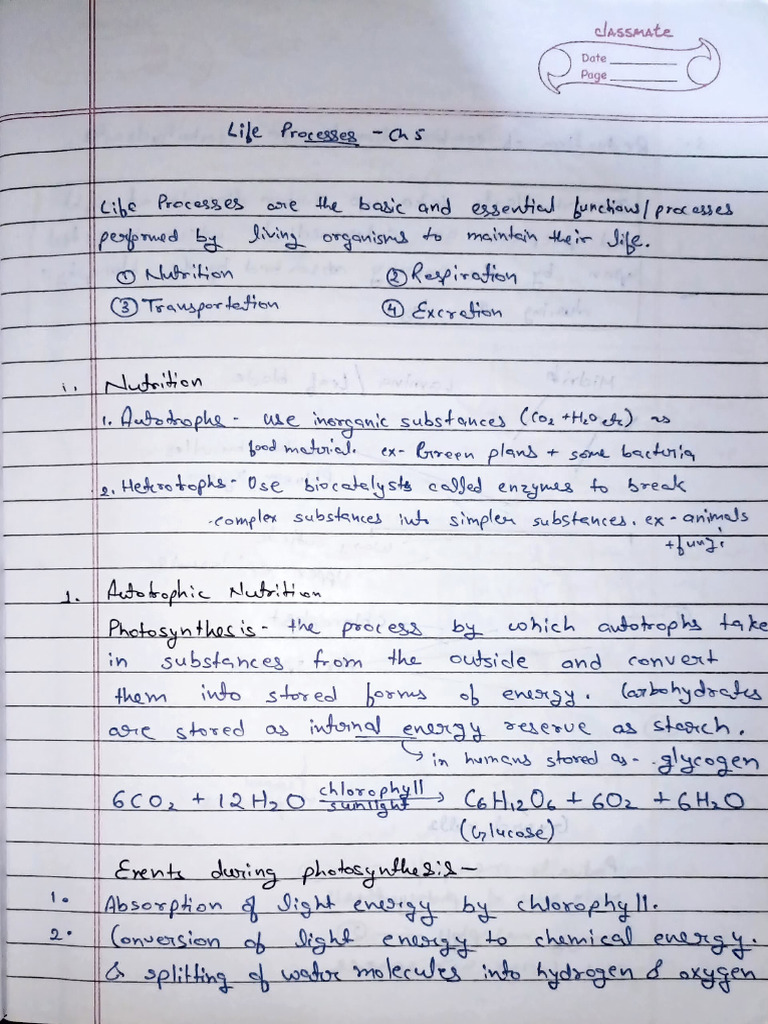 classmate
Date
Page
Life Processes - Ch 5
Life Processes are the basic and essential functions/processes
performed by living organisms to maintain their life.
① Nutrition ② Respiration
③ Transportation ④ Excration
i. Nutrition
1. Autotrophs - use inorganic substances (CO2 + H2O etc) as
food material. ex- Green plans + some bacteria
2. Hetrotrophs - Use biocatalysts called enzymes to break
complex substances into simpler substances. ex - animals
+ fungi
1. Autotrophic Nutrition
Photosynthesis - the process by which autotrophs take
in substances from the outside and convert
them into stored forms of energy. Carbohydrates
are stored as internal energy reserve as starch.
↳ in humans stored as - glycogen
6CO2 + 12H2O chlorophyll sunlight → C6H12O6 + 6O2 + 6H2O
(Glucose)
Events during photosynthesis -
1. Absorption of light energy by chlorophyll.
2. Conversion of light energy to chemical energy.
& splitting of water molecules into hydrogen & oxygen